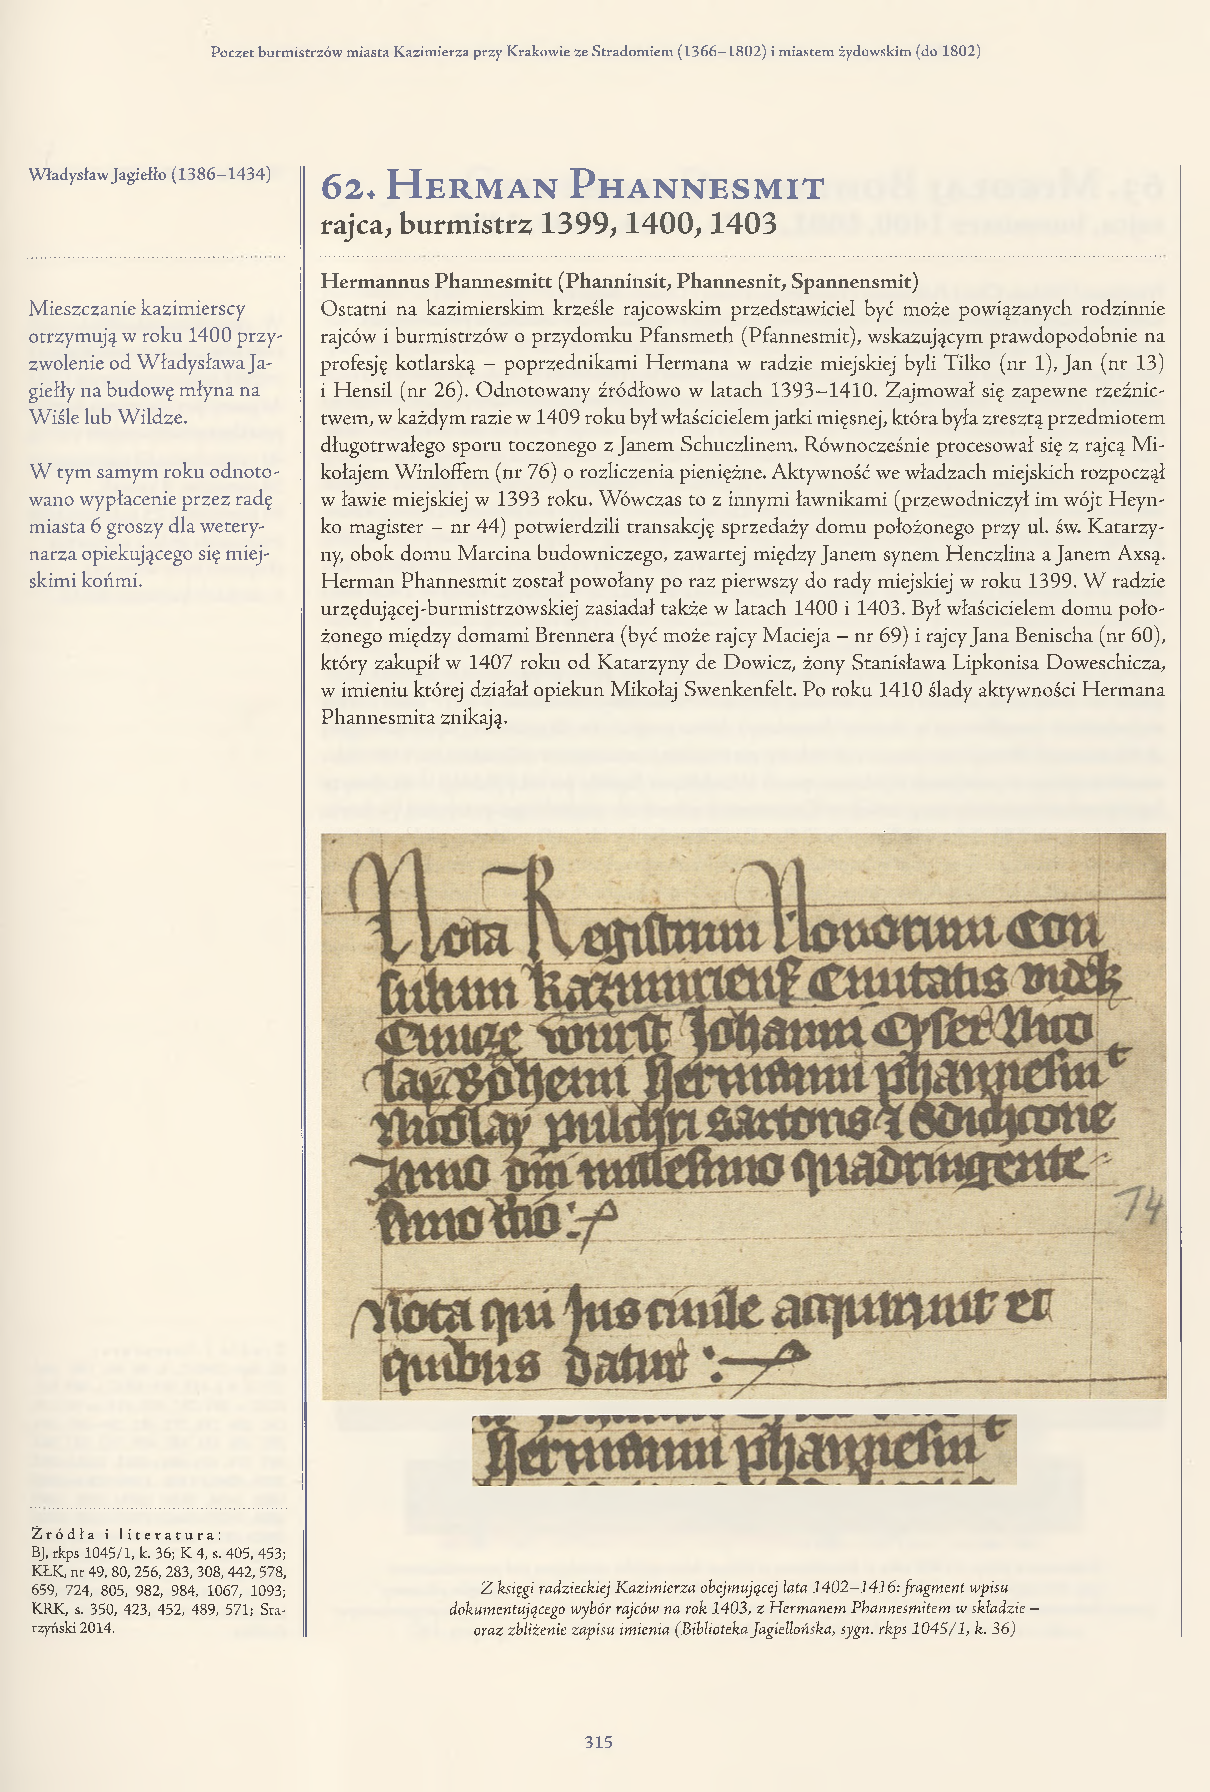 Poczet burmistrzów miasta Kazimierza przy Krakowie ze Stradomiem (1366–1802) i miastem żydowskim (do 1802)
Władysław Jagiełło (1386–1434)
Mieszczanie kazimierscy
otrzymują w roku 1400 przy-
zwolenie od Władysława Ja-
giełły na budowę młyna na
Wiśle lub Wildze.
W tym samym roku odnoto-
wano wypłacenie przez radę
miasta 6 groszy dla wetery-
narza opiekującego się miej-
skimi końmi.
Źródła i literatura:
BJ, rkps 1045/1, k. 36; K 4, s. 405, 453;
KŁK, nr 49, 80, 256, 283, 308, 442, 578,
659, 724, 805, 982, 984, 1067, 1093;
KRK, s. 350, 423, 452, 489, 571; Sta-
rzyński 2014.
62. Herman Phannesmit
rajca, burmistrz 1399, 1400, 1403
Hermannus Phannesmitt (Phanninsit, Phannesnit, Spannensmit)
Ostatni na kazimierskim krześle rajcowskim przedstawiciel być może powiązanych rodzinnie
rajców i burmistrzów o przydomku Pfansmeth (Pfannesmit), wskazującym prawdopodobnie na
profesję kotlarską – poprzednikami Hermana w radzie miejskiej byli Tilko (nr 1), Jan (nr 13)
i Hensil (nr 26). Odnotowany źródłowo w latach 1393–1410. Zajmował się zapewne rzeźnic-
twem, w każdym razie w 1409 roku był właścicielem jatki mięsnej, która była zresztą przedmiotem
długotrwałego sporu toczonego z Janem Schuczlinem. Równocześnie procesował się z rajcą Mi-
kołajem Winloffem (nr 76) o rozliczenia pieniężne. Aktywność we władzach miejskich rozpoczął
w ławie miejskiej w 1393 roku. Wówczas to z innymi ławnikami (przewodniczył im wójt Heyn-
ko magister – nr 44) potwierdzili transakcję sprzedaży domu położonego przy ul. św. Katarzy-
ny, obok domu Marcina budowniczego, zawartej między Janem synem Henczlina a Janem Axsą.
Herman Phannesmit został powołany po raz pierwszy do rady miejskiej w roku 1399. W radzie
urzędującej-burmistrzowskiej zasiadał także w latach 1400 i 1403. Był właścicielem domu poło-
żonego między domami Brennera (być może rajcy Macieja – nr 69) i rajcy Jana Benischa (nr 60),
który zakupił w 1407 roku od Katarzyny de Dowicz, żony Stanisława Lipkonisa Doweschicza,
w imieniu której działał opiekun Mikołaj Swenkenfelt. Po roku 1410 ślady aktywności Hermana
Phannesmita znikają.
Nota Registrum Novorum Con
sulum Kazimiriens Civitatis
Johanni Nico
Bohemi Hermanni phannesmit
Nicolay pulchri sartoris
Anno dni millesimo quadringente
simo
74
Nota qui Jus civile acquirunt et
quibus datur
Hermanni phannesmit
Z księgi radzieckiej Kazimierza obejmującej lata 1402–1416: fragment wpisu
dokumentującego wybór rajców na rok 1403, z Hermanem Phannesmitem w składzie –
oraz zbliżenie zapisu imienia (Biblioteka Jagiellońska, sygn. rkps 1045/1, k. 36)
315